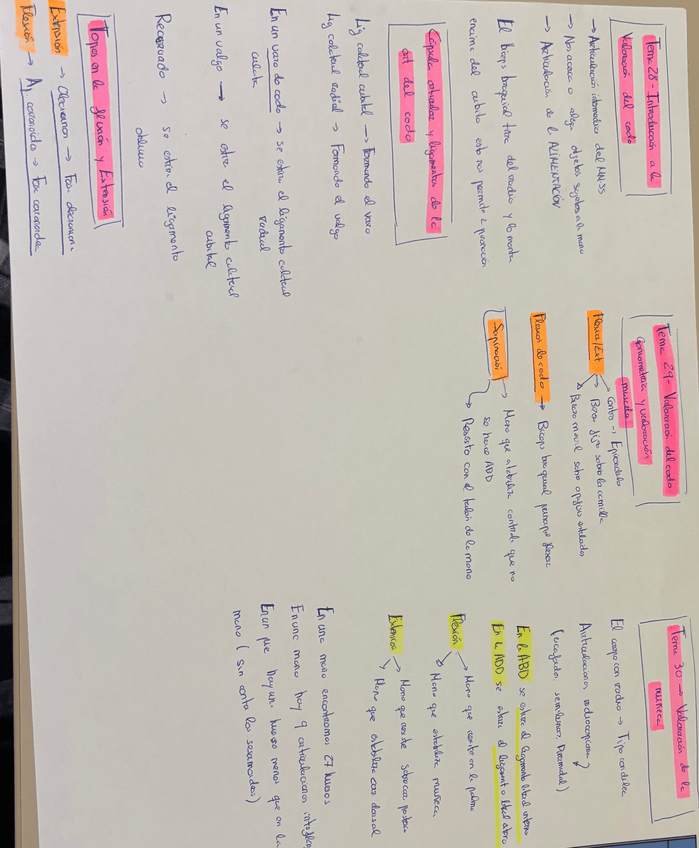 Tema 28 - Introducción a la
Valoración del codo
→ Articulación intermedia del MMSS
→ Nos acerca o aleja objetos sujetos a la mano
→ Articulación de la ALIMENTACIÓN
El bíceps braquial tira del radio y lo monta
encima del cubito esto nos permite la pronación
Cápsula articular y ligamentos de la
art del codo
Lig colateral cubital → Formando el varo
Lig colateral radial → Formando el valgo
En un varo de codo → se estira el ligamento colateral
radial
cubital
En un valgo → se estira el ligamento colateral
cubital
Recervado → se estira el ligamento
oblicuo
Topes en la flexión y Extensión
Extensión → Olecranon → Fosa olecraneana
Flexión → Ap coronoides → Fosa coronoidea
Tema 29 - Valoración del codo
Goniometría y valoración
muscular
Flexo/Ext → Centro → Epicóndilo
→ Brazo fijo sobre la camilla
→ Brazo movil sobre apófisis estiloides
Flexión de codo → Bíceps braquial principal flexor
Supinación → Mano que estabiliza controla que no
se haga ABD
→ Resisto con el talón de la mano
Tema 30 → Valoración de la
muñeca
El carpo con radio → Tipo condilea
Articulaciones radiocarpiana
(escafoides, semilunar, Piramidal)
En la ABD se estira el ligamento lateral interno
En la ADD se estira el ligamento lateral externo
Flexión → Mano que resiste en la palma
→ Mano que estabiliza muñeca
Extensión → Mano que resiste sobre cara posterior
→ Mano que estabiliza cara dorsal
En una mano encontramos 27 huesos
En una mano hay 9 articulaciones
En un pie hay un hueso menos que en la
mano (sin contar los sesamoideos)